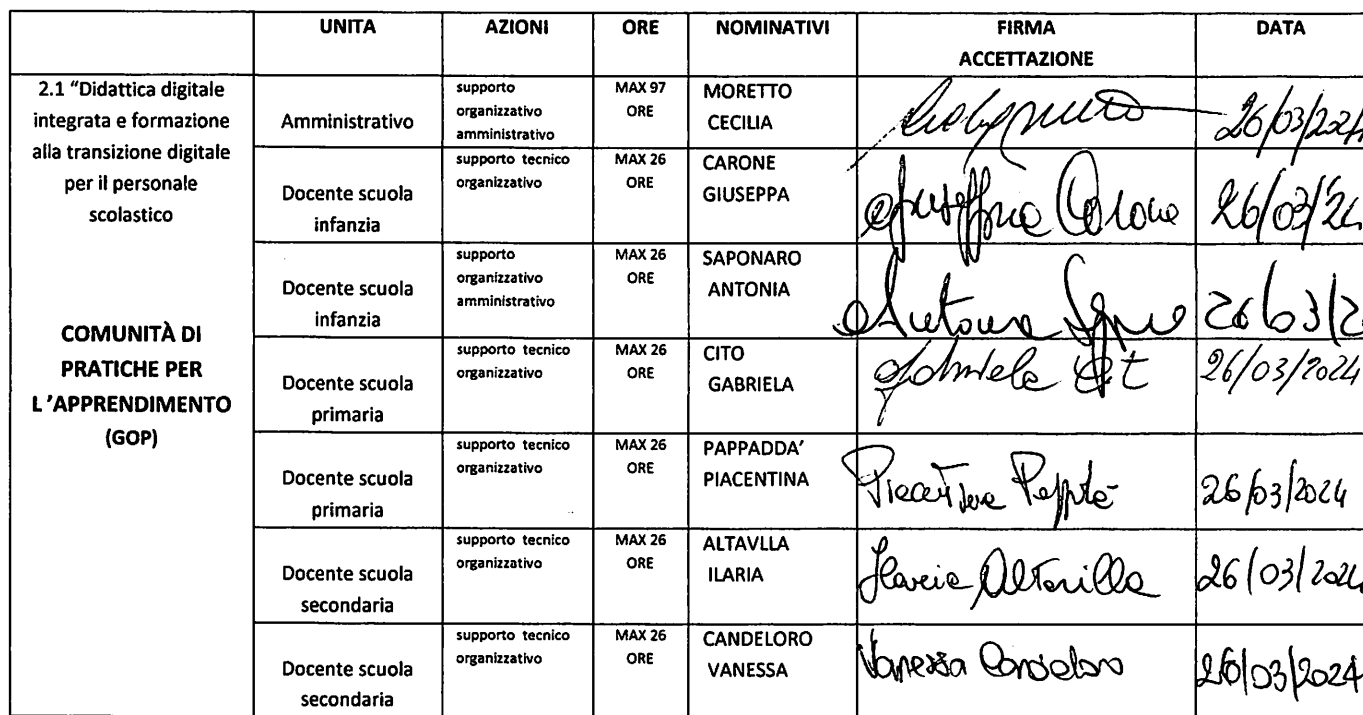 UNITA AZIONI ORE NOMINATIVI FIRMA ACCETTAZIONE DATA
2.1 "Didattica digitale
integrata e formazione
alla transizione digitale
per il personale
scolastico
COMUNITÀ DI
PRATICHE PER
L 'APPRENDIMENTO
(GOP)
Amministrativo
supporto
organizzativo
amministrativo
MAX 97
ORE
MORETTO
CECILIA
26/03/2024
Docente scuola
infanzia
supporto tecnico
organizzativo
MAX 26
ORE
CARONE
GIUSEPPA
Giuseppa Carone
26/03/24
Docente scuola
infanzia
supporto
organizzativo
amministrativo
MAX 26
ORE
SAPONARO
ANTONIA
Antonia
26/03/2
Docente scuola
primaria
supporto tecnico
organizzativo
MAX 26
ORE
CITO
GABRIELA
Gabriela
26/03/2024
Docente scuola
primaria
supporto tecnico
organizzativo
MAX 26
ORE
PAPPADDA'
PIACENTINA
Piacentina
26/03/2024
Docente scuola
secondaria
supporto tecnico
organizzativo
MAX 26
ORE
ALTAVLLA
ILARIA
Ilaria Altavilla
26/03/2024
Docente scuola
secondaria
supporto tecnico
organizzativo
MAX 26
ORE
CANDELORO
VANESSA
Vanessa Candeloro
26/03/2024